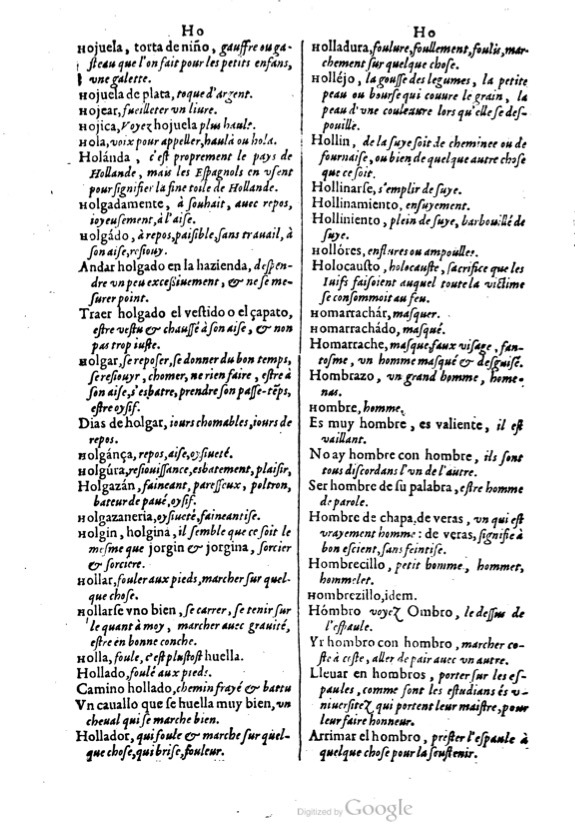 Ho
Hojuela, torta de niño, gauffre ou ga-
steau que l'on fait pour les petits enfans,
vne galette.
Hojuela de plata, toque d'argent.
Hojear, fueilleter vn liure.
Hojica, Voyez hojuela plus haule.
Hola, voix pour appeller, haulà ou hola.
Holánda, c'est proprement le pays de
Hollande, mais les Espagnols en vsent
pour signifier la fine toile de Hollande.
Holgadamente, à souhait, auec repos,
ioyeusement, à l'aise.
Holgádo, à repos, paisible, sans trauail, à
son aise, resiouy.
Andar holgado en la hazienda, despen-
dre vn peu excessiuement, & ne se me-
surer point.
Traer holgado el vestido o el çapato,
estre vestu & chaussé à son aise, & non
pas trop iuste.
Holgar, se reposer, se donner du bon temps,
se resiouyr, chomer, ne rien faire, estre à
son aise, s'esbatre, prendre son passe-tẽps,
estre oysif.
Dias de holgar, iours chomables, iours de
repos.
Holgánça, repos, aise, oysiueté.
Holgúra, resiouissance, esbatement, plaisir,
Holgazán, faineant, paresseux, poltron,
bateur de paué, oysif.
Holgazaneria, oysiueté, faineantise.
Holgin, holgina, il semble que ce soit le
mesme que jorgin & jorgina, sorcier
& sorciere.
Hollar, fouler aux pieds, marcher sur quel-
que chose.
Hollarse vno bien, se carrer, se tenir sur
le quant à moy, marcher auec grauité,
estre en bonne conche.
Holla, foule, c'est plustost huella.
Hollado, foulé aux pieds.
Camino hollado, chemin frayé & battu
Vn cauallo que se huella muy bien, vn
cheual qui se marche bien.
Hollador, qui foule & marche sur quel-
que chose, qui brise, fouleur.
Ho
Holladura, foulure, foullement, foulis, mar-
chement sur quelque chose.
Holléjo, la gousse des legumes, la petite
peau ou bourse qui couure le grain, la
peau d'vne couleuure lors qu'elle se des-
pouille.
Hollin, de la suye soit de cheminee ou de
fournaise, ou bien de quelque autre chose
que ce soit.
Hollinarse, s'emplir de suye.
Hollinamiento, ensuyement.
Holliniento, plein de suye, barbouillé de
suye.
Hollóres, enflures ou ampoulles.
Holocausto, holocauste, sacrifice que les
Iuifs faisoient auquel toute la victime
se consommoit au feu.
Homarrachár, masquer.
Homarrachádo, masqué.
Homarrache, masque, faux visage, fan-
tosme, vn homme masqué & desguisé.
Hombrazo, vn grand homme, home-
nas.
Hombre, homme.
Es muy hombre, es valiente, il est
vaillant.
No ay hombre con hombre, ils sont
tous discordans l'vn de l'autre.
Ser hombre de su palabra, estre homme
de parole.
Hombre de chapa, de veras, vn qui est
vrayement homme: de veras, signifie à
bon escient, sans feintise.
Hombrecillo, petit homme, hommet,
hommelet.
Hombrezillo, idem.
Hómbro voyez Ombro, le dessus de
l'espaule.
Yr hombro con hombro, marcher co-
ste à coste, aller de pair auec vn autre.
Lleuar en hombros, porter sur les es-
paules, comme sont les estudians és v-
niuersitez qui portent leur maistre, pour
leur faire honneur.
Arrimar el hombro, prester l'espaule à
quelque chose pour la soustenir.
Digitized by Google